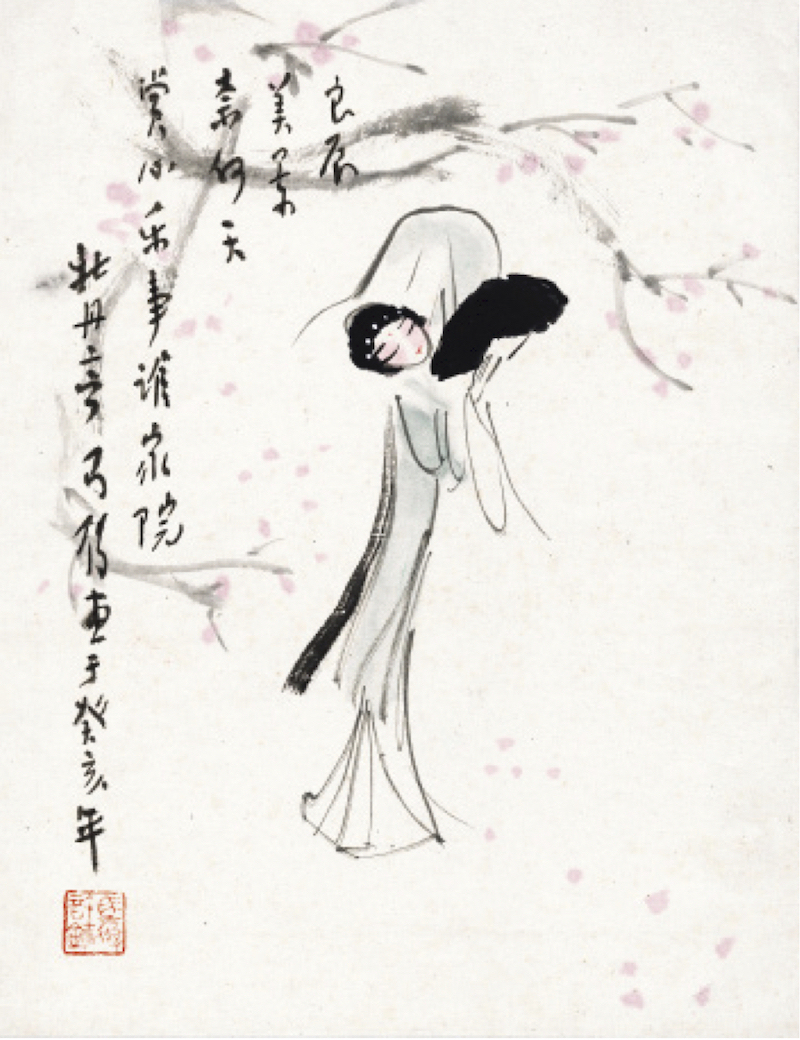 良辰
美景
奈何天
赏心乐事谁家院
牡丹亭 马得画于癸亥年